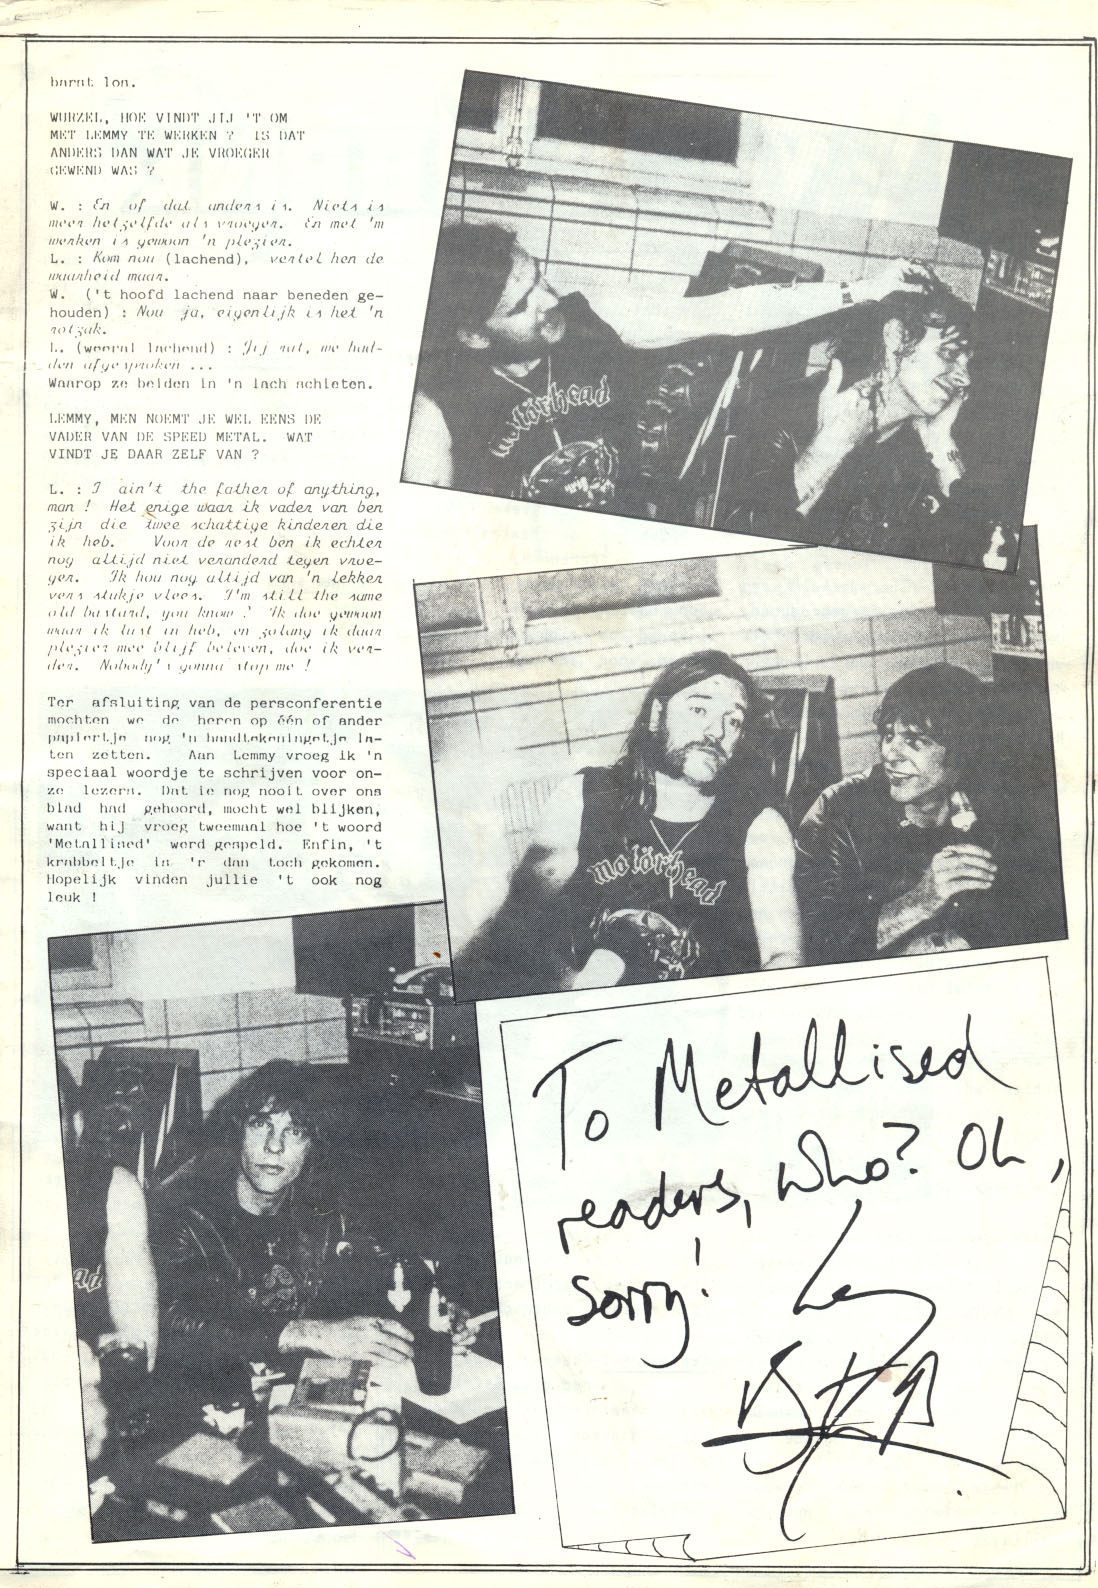 barst los.
WURZEL, HOE VINDT JIJ 'T OM
MET LEMMY TE WERKEN ? IS DAT
ANDERS DAN WAT JE VROEGER
GEWEND WAS ?
W. : En of dat anders is. Niets is
meer hetzelfde als vroeger. En met 'm
werken is gewoon 'n plezier.
L. : Kom nou (lachend), vertel hen de
waarheid maar.
W. ('t hoofd lachend naar beneden ge-
houden) : Nou ja, eigenlijk is het 'n
rotzak.
L. (weeral lachend) : Jij rat, we had-
den afgesproken ...
Waarop ze beiden in 'n lach schieten.
LEMMY, MEN NOEMT JE WEL EENS DE
VADER VAN DE SPEED METAL. WAT
VINDT JE DAAR ZELF VAN ?
L. : I ain't the father of anything,
man ! Het enige waar ik vader van ben
zijn die twee schattige kinderen die
ik heb. Voor de rest ben ik echter
nog altijd niet veranderd tegen vroe-
ger. Ik hou nog altijd van 'n lekker
vers stukje vlees. I'm still the same
old bastard, you know ! Ik doe gewoon
waar ik lust in heb, en zolang ik daar
plezier mee blijf beleven, doe ik ver-
der. Nobody's gonna stop me !
Ter afsluiting van de persconferentie
mochten we de heren op één of ander
papiertje nog 'n handtekeningetje la-
ten zetten. Aan Lemmy vroeg ik 'n
speciaal woordje te schrijven voor on-
ze lezers. Dat ie nog nooit over ons
blad had gehoord, mocht wel blijken,
want hij vroeg tweemaal hoe 't woord
'Metallised' werd gespeld. Enfin, 't
krabbeltje is 'r dan toch gekomen.
Hopelijk vinden jullie 't ook nog
leuk !
motörhead
motörhead
ad
To Metallised
readers, who? Oh,
sorry!